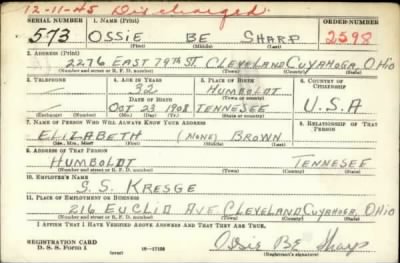 12-11-45 Discharged.
SERIAL NUMBER 1. NAME (Print) ORDER NUMBER
573 OSSIE BE SHARP 2598
(First) (Middle) (Last)
2. ADDRESS (Print)
2276 EAST 79TH ST. CLEVELAND CUYAHOGA, OHIO
(Number and street or R. F. D. number) (Town) (County) (State)
3. TELEPHONE 4. AGE IN YEARS 5. PLACE OF BIRTH 6. COUNTRY OF CITIZENSHIP
— 32 HUMBOLDT
DATE OF BIRTH (Town or county)
OCT 23 1908 TENNESEE U.S.A
(Exchange) (Number) (Mo.) (Day) (Yr.) (State or country)
7. NAME OF PERSON WHO WILL ALWAYS KNOW YOUR ADDRESS 8. RELATIONSHIP OF THAT PERSON
ELIZABETH (NONE) BROWN
(Mr., Mrs., Miss) (First) (Middle) (Last)
9. ADDRESS OF THAT PERSON
HUMBOLDT TENNESEE
(Number and street or R. F. D. number) (Town) (County) (State)
10. EMPLOYER'S NAME
S.S. KRESGE
11. PLACE OF EMPLOYMENT OR BUSINESS
216 EUCLID AVE CLEVELAND CUYAHOGA, OHIO
(Number and street or R. F. D. number) (Town) (County) (State)
I AFFIRM THAT I HAVE VERIFIED ABOVE ANSWERS AND THAT THEY ARE TRUE.
REGISTRATION CARD
D. S. S. Form 1 (over) Ossie BE Sharp
(Registrant's signature)